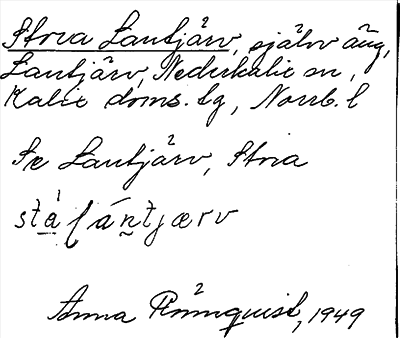 Stora Lantjärv, självv äng,
Lantjärv, Nederkalix sn,
Kalix doms. lg, Norrb. l
Se Lantjärv, Stora
Anna Rönnquist, 1949